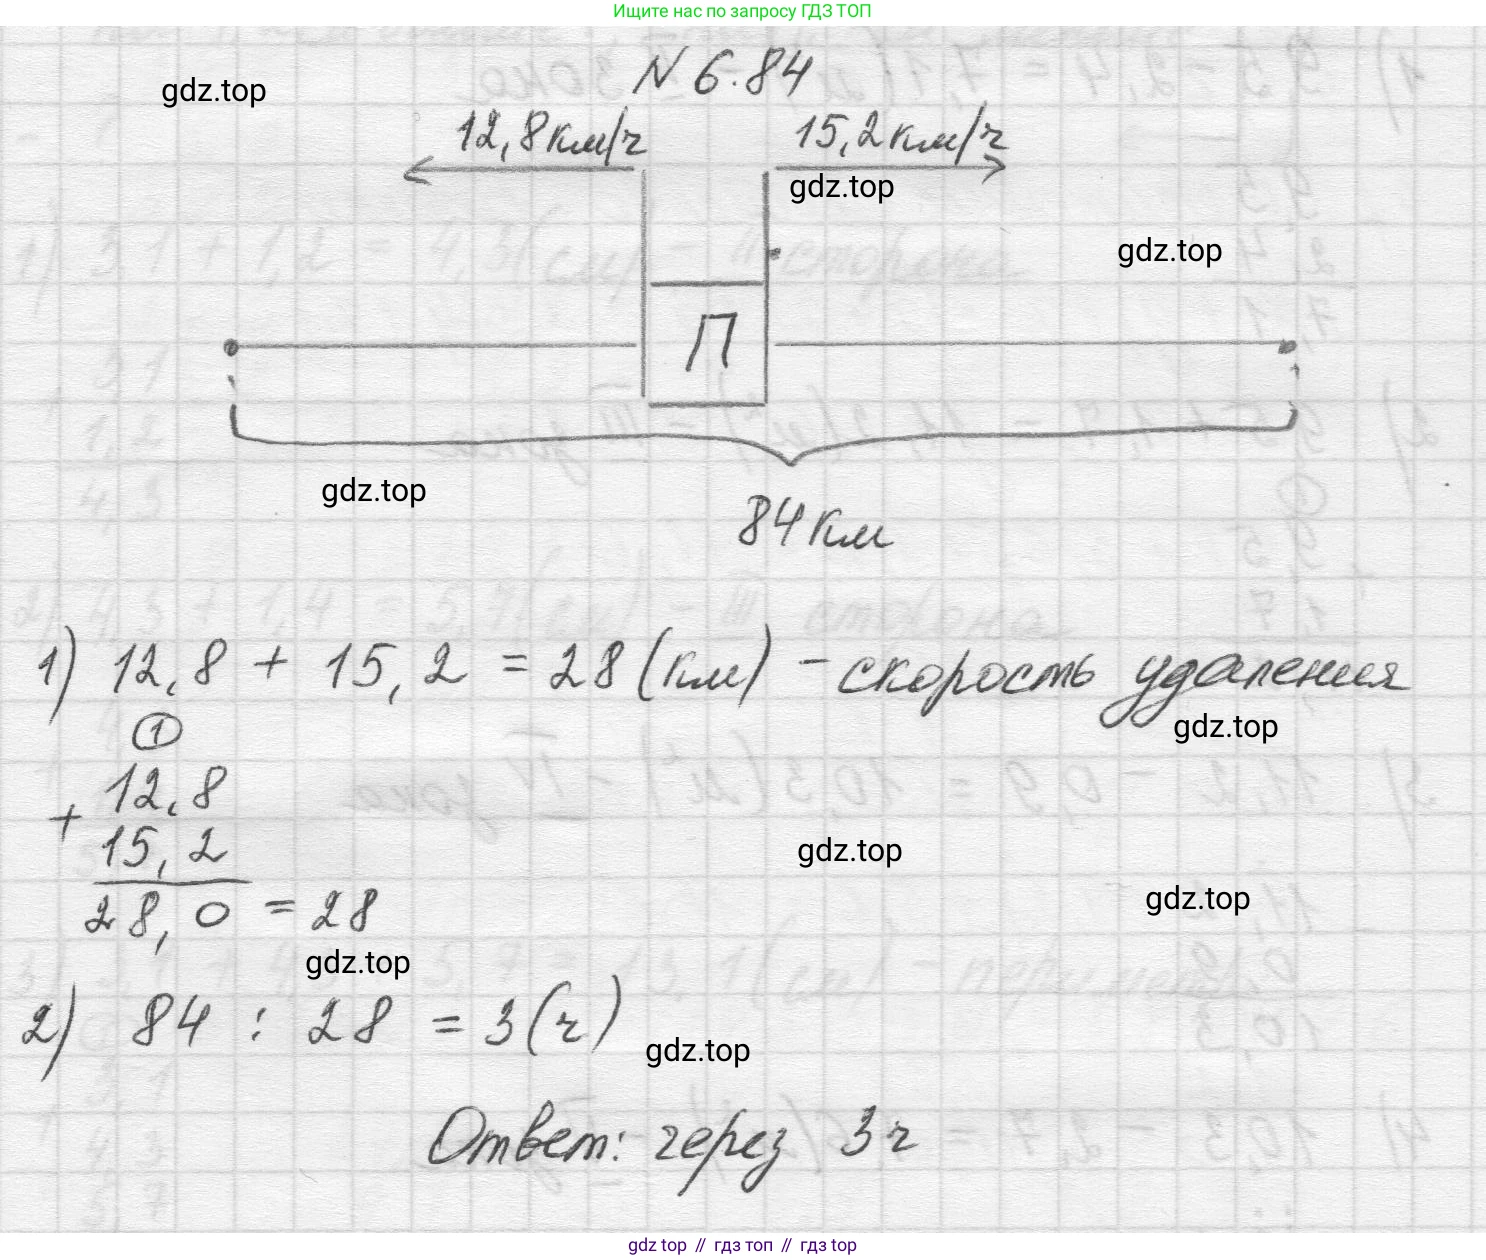 Ищите нас по запросу ГДЗ ТОП
N 6.84
gdz.top
12,8км/ч 15,2км/ч
gdz.top
gdz.top
П
gdz.top
84км
1) 12,8 + 15,2 = 28 (км) - скорость удаления
gdz.top
1
12,8
+
15,2
gdz.top
28,0 = 28
gdz.top
gdz.top
2) 84 : 28 = 3 (ч)
gdz.top
Ответ: через 3ч
gdz top // гдз топ // гдз top